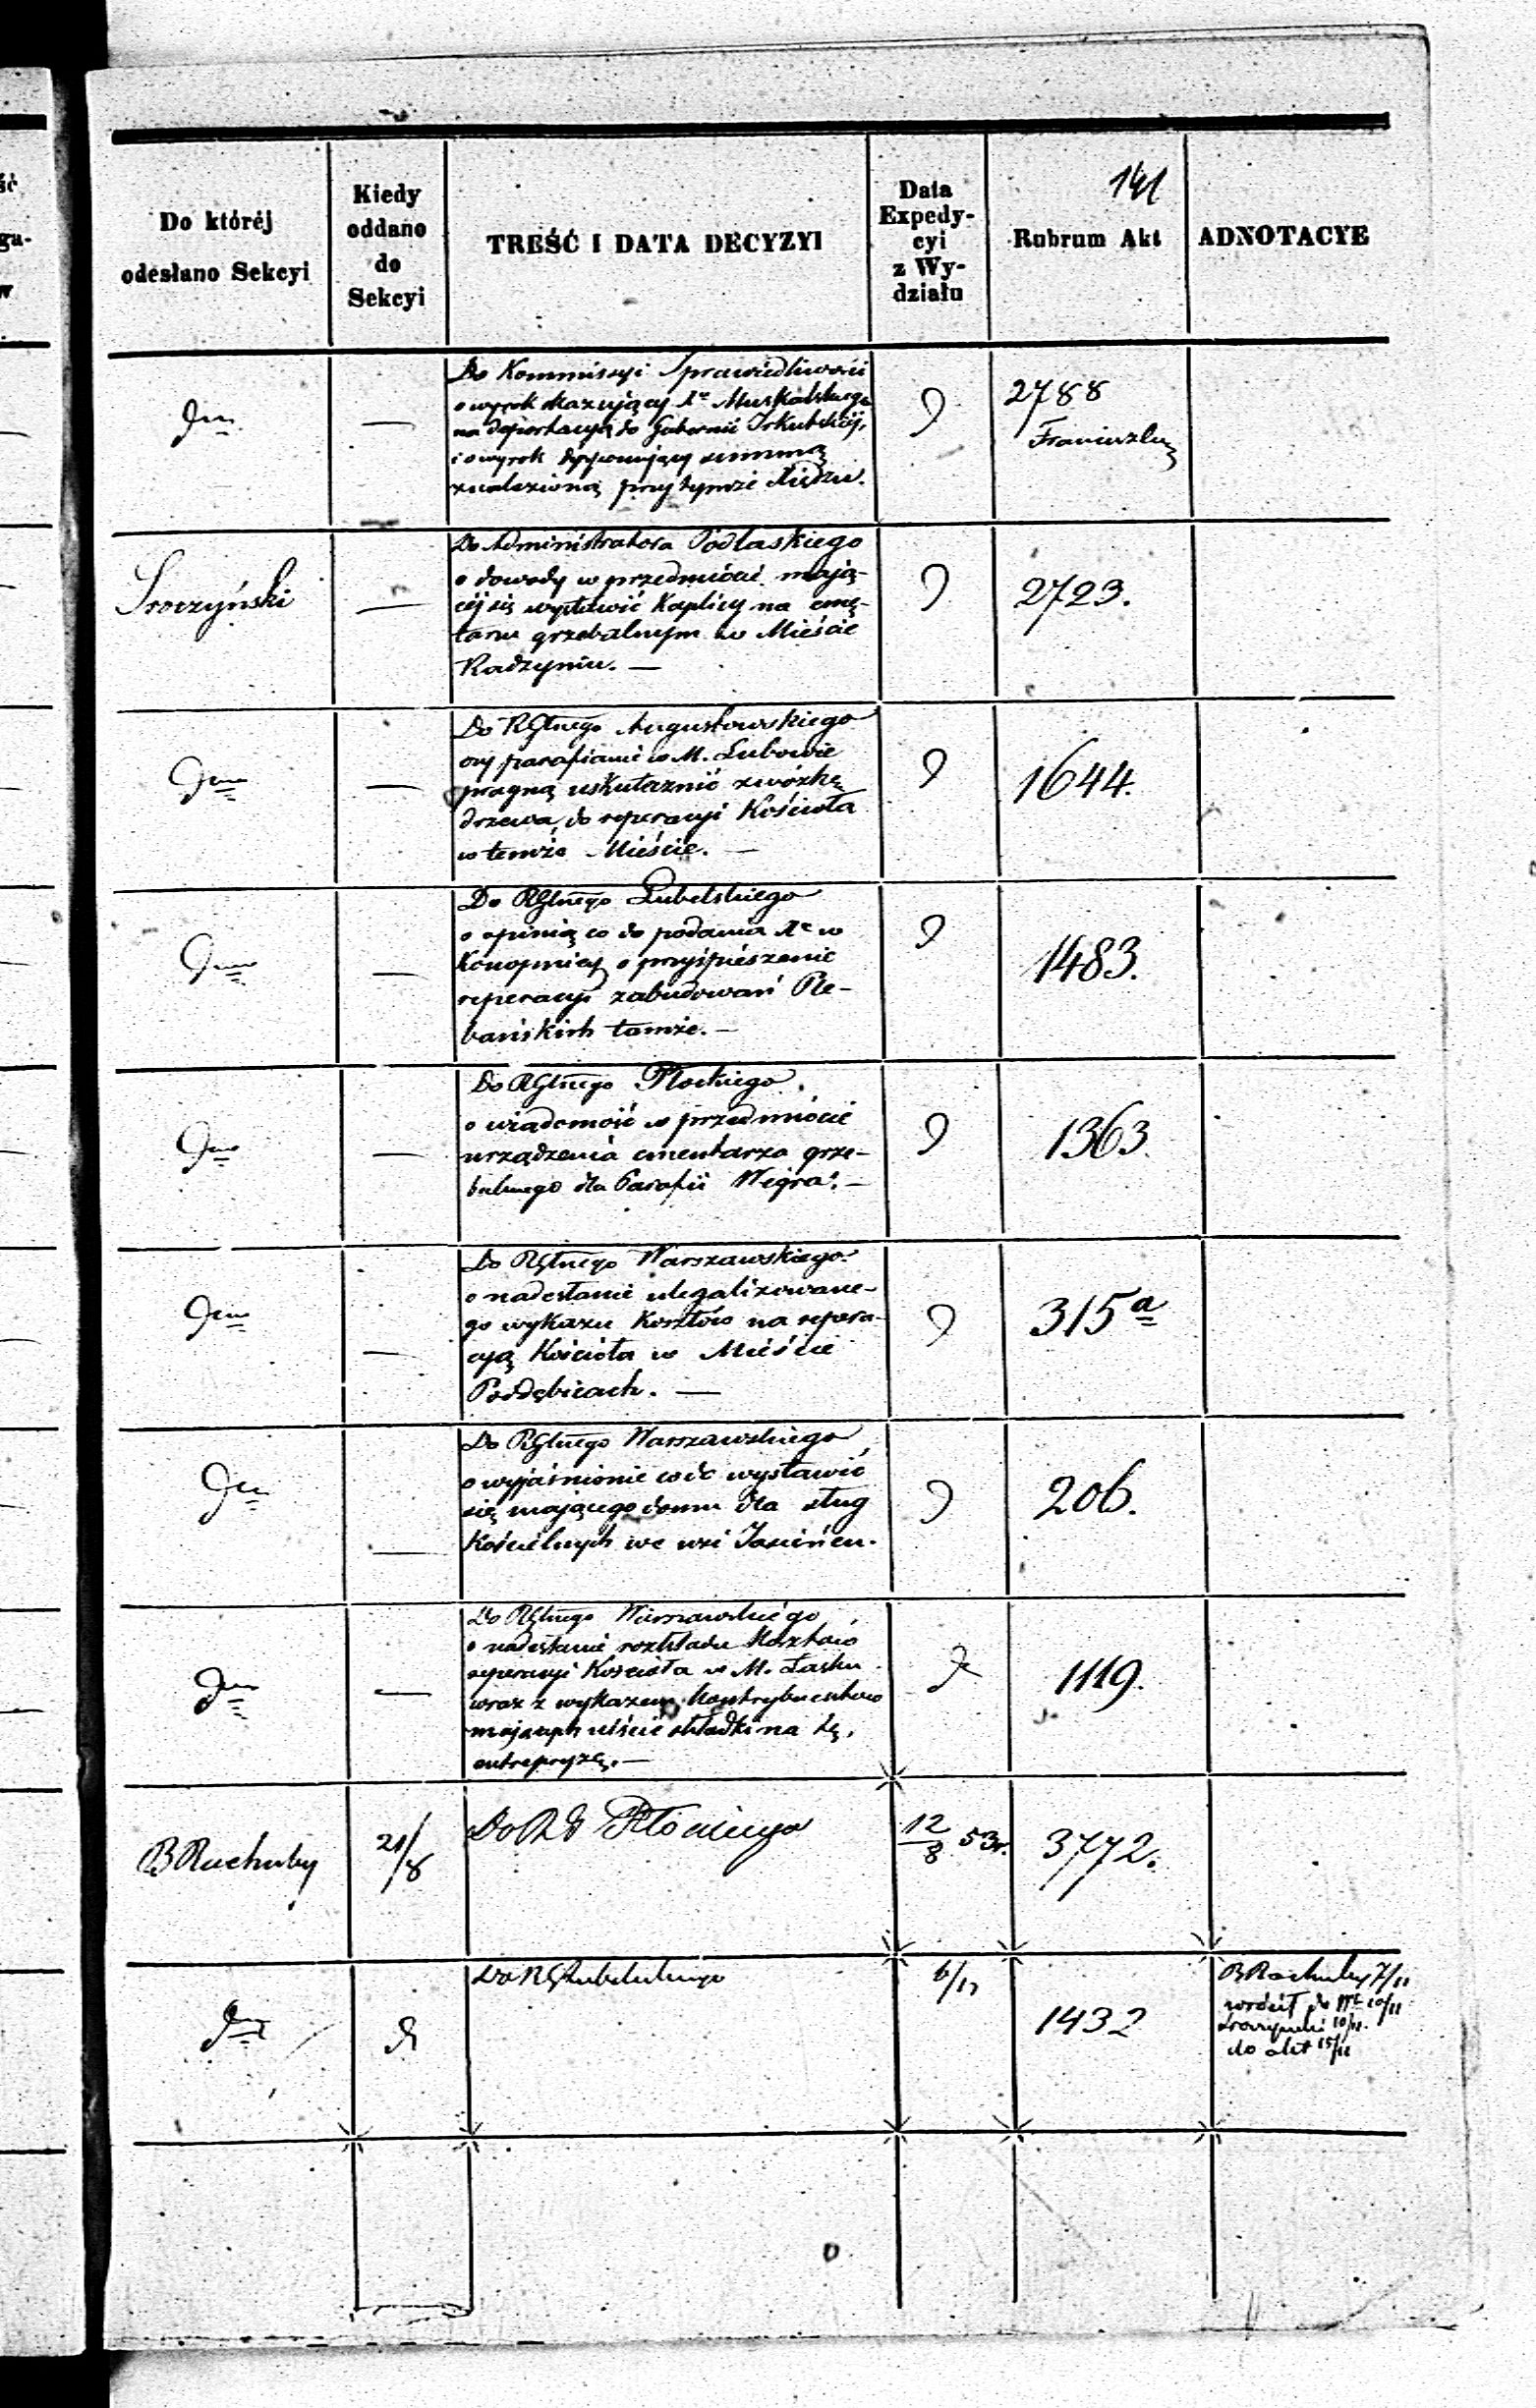 141
Do któréj
odesłano Sekcyi
Kiedy
oddano
do
Sekcyi
TREŚĆ I DATA DECYZYI
Data
Expedy-
cyi
z Wy-
działu
Rubrum Akt
ADNOTACYE
Do Kommissyi Sprawiedliwości
o wyrok skazujący Xa Muskalskiego
na deportacyą do Gubernii Irkutskiéj,
i o wyrok summą
znalezioną przy tymże Xiędzu.
2788
Sroczyński
—
Do Administratora Podlaskiego
o dowody w przedmiocie mają-
céj się wystawić Kaplicy na cmę-
tarzu grzebalnym w Mieście
Radzyniu. —
2723.
Do RGlnego Augustowskiego
czy parafianie w M. Lubowie
pragną uskutecznić zwózkę
drzewa do reperacyi Kościoła
w temże Mieście. —
1644.
Do RGlnego Lubelskiego
o opinią co do podania Xa w
Konopnicy o przyśpieszenie
reperacyi zabudowań Ple-
bańskich tamże. —
1483.
Do RGlnego Płockiego
o wiadomość w przedmiocie
urządzenia cmentarza grze-
balnego dla Parafii Węgra. —
1363.
Do RGlnego Warszawskiego
o nadesłanie ulegalizowane-
go wykazu Kosztów na repera-
cyą Kościoła w Mieście
Poddębicach. —
315a
Do RGlnego Warszawskiego
o wyjaśnienie co do wystawić
się mającego domu dla sług
Kościelnych we wsi Jasieńcu.
206.
Do RGlnego Warszawskiego
o nadesłanie rozkładu Kosztów
reperacyi Kościoła w M. Łasku
wraz z wykazem Kontrybuentów
mających uiścić składki na tę
entrepryzę. —
1119.
B Rachuby
21/8
Do RG Płockiego
12/8 53r.
3772.
Do RG Lubelskiego
6/11
1432
B Rachuby 7/11
wrócił do 10/11
Sroczyński 10/11
do akt 15/11